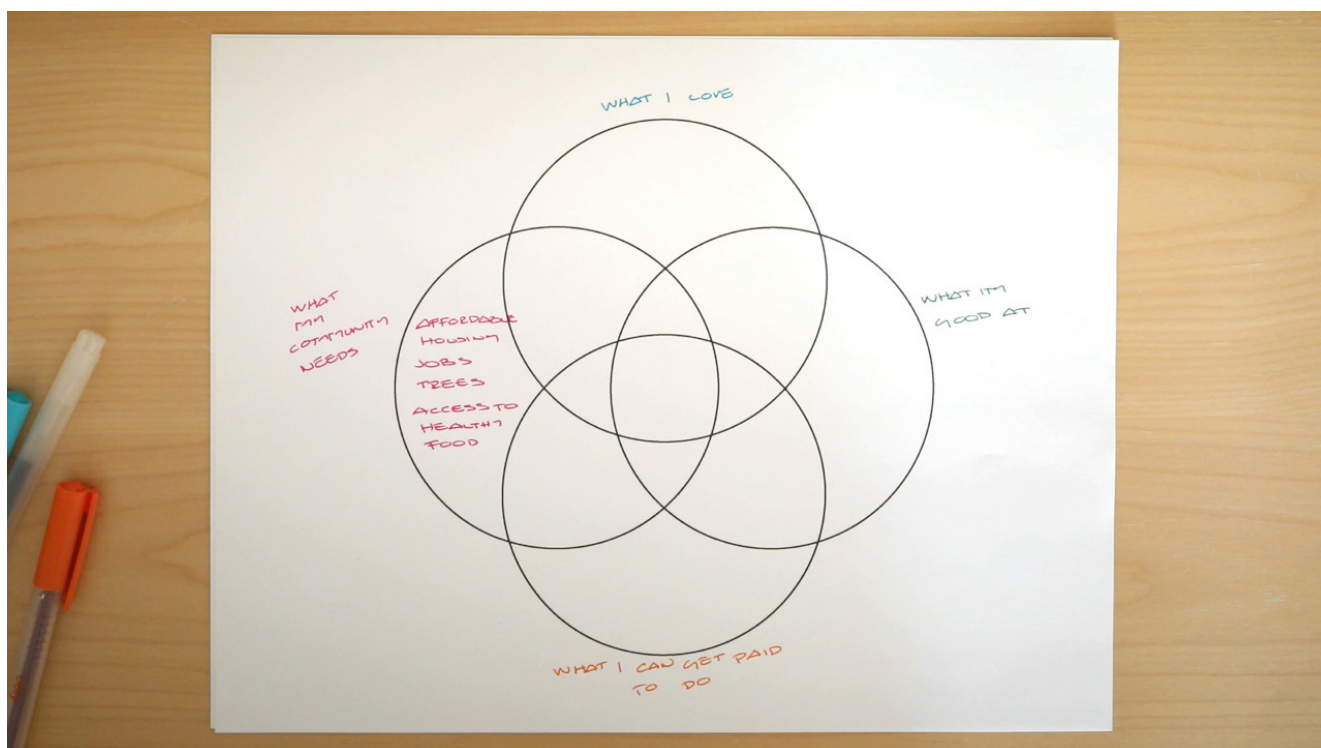 WHAT I LOVE
WHAT
MY
COMMUNITY
NEEDS
AFFORDABLE
HOUSING
JOBS
TREES
ACCESS TO
HEALTHY
FOOD
WHAT IM
GOOD AT
WHAT I CAN GET PAID
TO DO